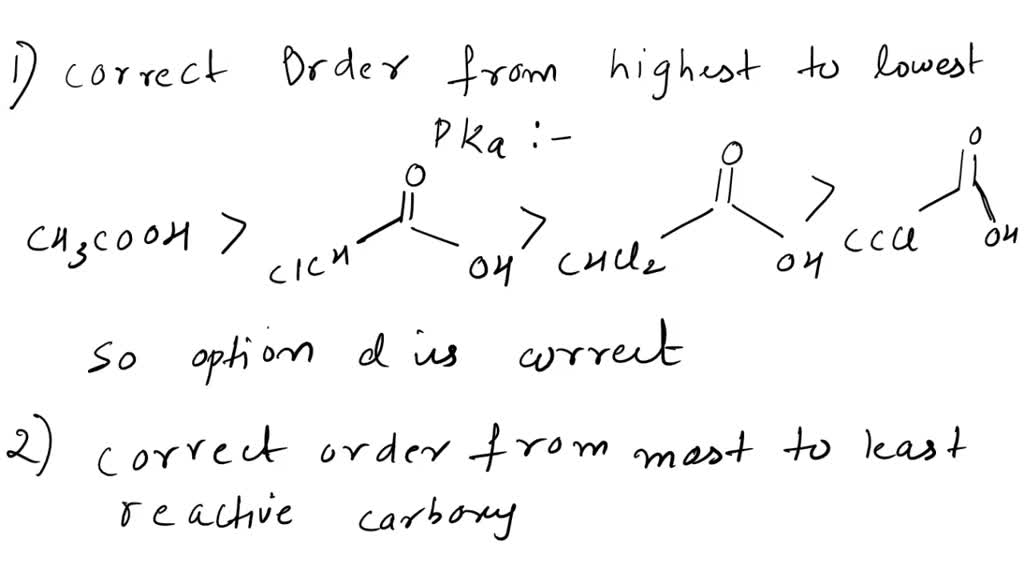 1) correct Order from highest to lowest
PKa :-
CH3COOH > ClCH O OH > CHCl2 O OH > CCCl O OH
so option d is correct
2) correct order from most to least
reactive carboxy